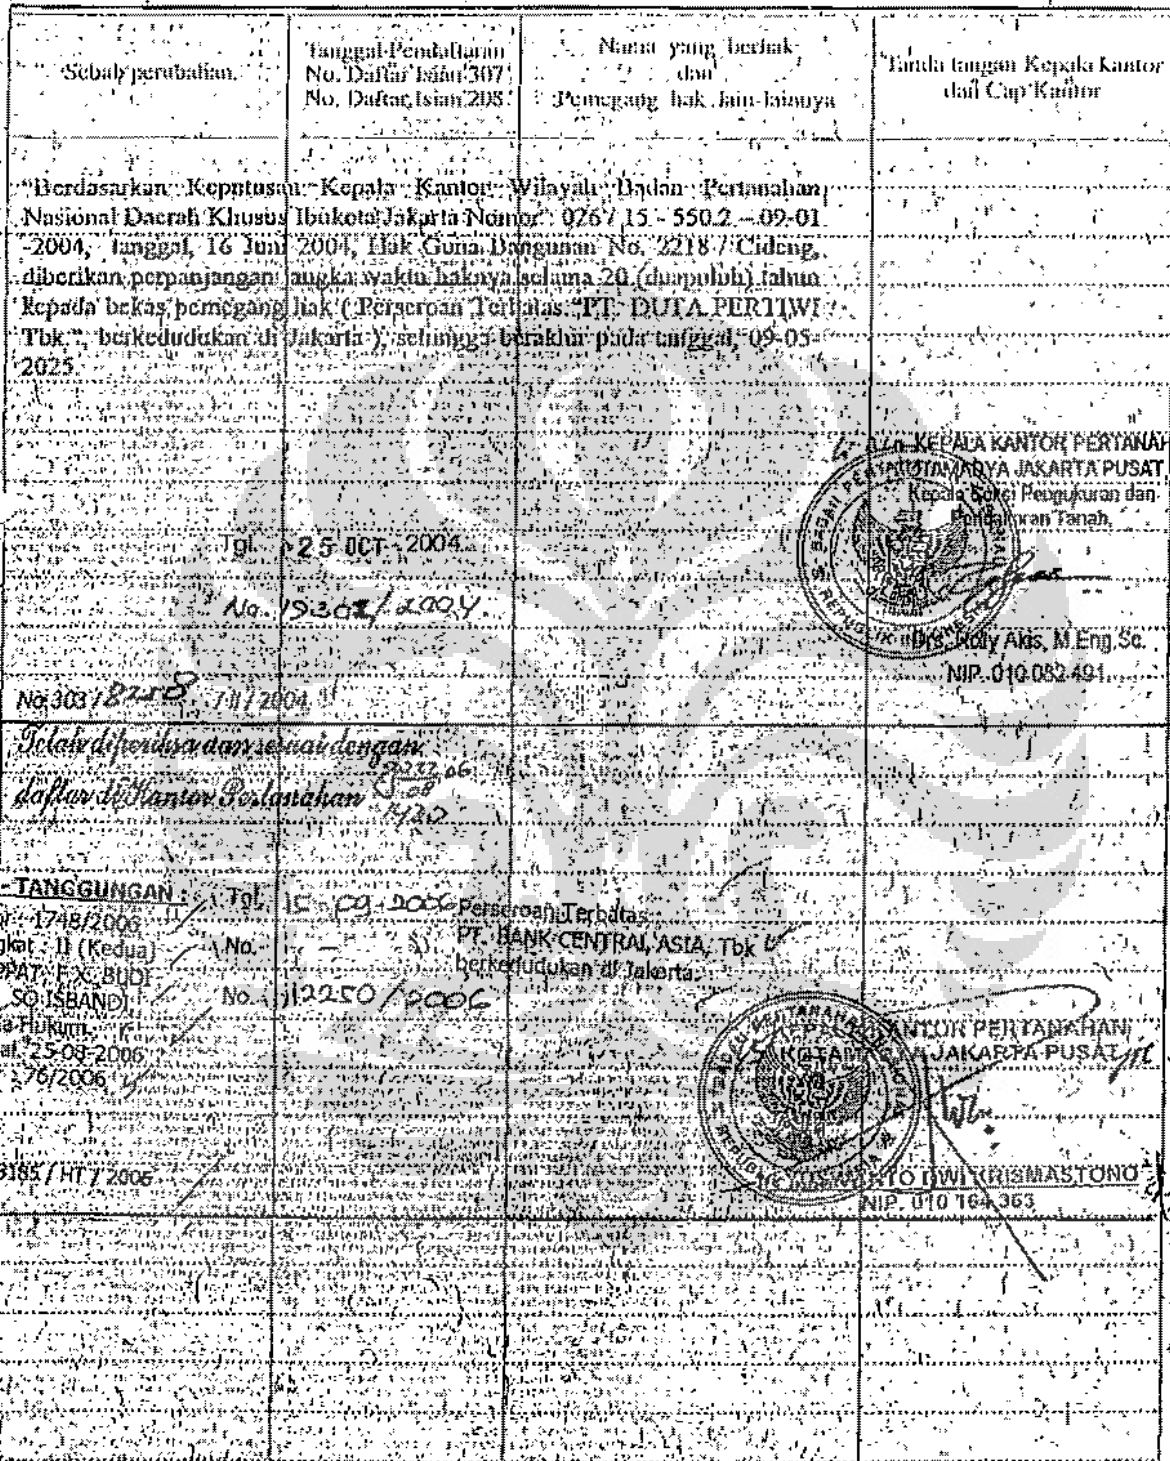 Sebab perubahan.
Tanggal Pendaftaran
No. Daftar Isian 307
No. Daftar Isian 208
Nama yang berhak
dan
Pemegang hak lain-lainnya
Tanda tangan Kepala Kantor
dan Cap Kantor
"Berdasarkan Keputusan Kepala Kantor Wilayah Badan Pertanahan
Nasional Daerah Khusus Ibukota Jakarta Nomor : 026 / 15 - 550.2 - 09-01
-2004, tanggal, 16 Juni 2004, Hak Guna Bangunan No. 2218 / Cideng,
diberikan perpanjangan jangka waktu haknya selama 20 (duapuluh) tahun
kepada bekas pemegang hak ( Perseroan Terbatas "PT. DUTA PERTIWI
Tbk.", berkedudukan di Jakarta ), sehingga berakhir pada tanggal, 09-05-
2025.
KEPALA KANTOR PERTANAH
KOTAMADYA JAKARTA PUSAT
Kepala Seksi Pengukuran dan
Pendaftaran Tanah,
Tgl. 25 OCT 2004
No. /2004.
Drs. Rolly Akis, M.Eng.Sc.
NIP. 010 082 491
No. 303 / 8258 / 2004
Telah diperiksa dan sesuai dengan
daftar di Kantor Pertanahan
TANGGUNGAN :
or : 1748/2006
gkat : II (Kedua)
PPAT F.X. BUDI
SO ISBANDI
a Hukum
al. 25-08-2006
76/2006
3185 / HT / 2006
Tgl. 15-09-2006
No. -
No. 12250 / 2006
Perseroan Terbatas
PT. BANK CENTRAL ASIA, Tbk
berkedudukan di Jakarta.
KEPALA KANTOR PERTANAHAN
KOTAMADYA JAKARTA PUSAT
DWI KRISMASTONO
NIP. 010 164 363